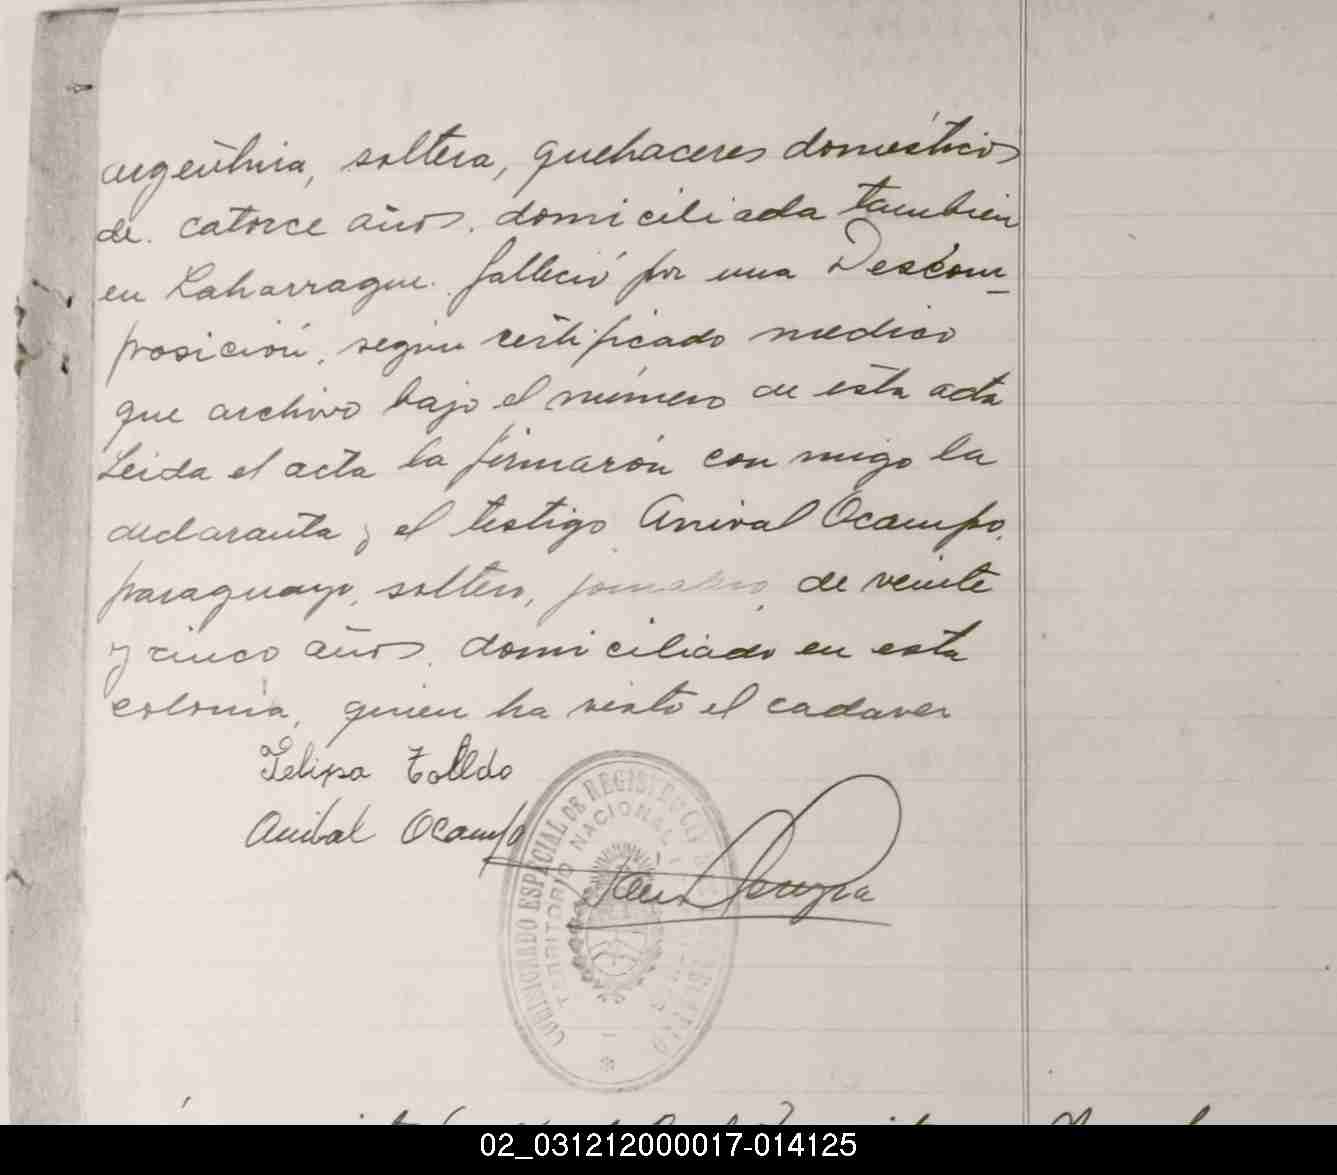 argentina, soltera, quehaceres domésticos
de catorce años, domiciliada tambien
en Laharrague. falleció por una Descom-
posición, según certificado medico
que archivo bajo el número de esta acta
Leida el acta la firmarón con migo la
declaranta y el testigo Anival Ocampo,
paraguayo, soltero, jornalero, de veinte
y cinco años, domiciliado en esta
colonia, quien ha visto el cadaver
Felipa Tolldo
Anibal Ocampo
COMISIONADO ESPECIAL DE REGISTRO
TERRITORIO NACIONAL
02_031212000017-014125